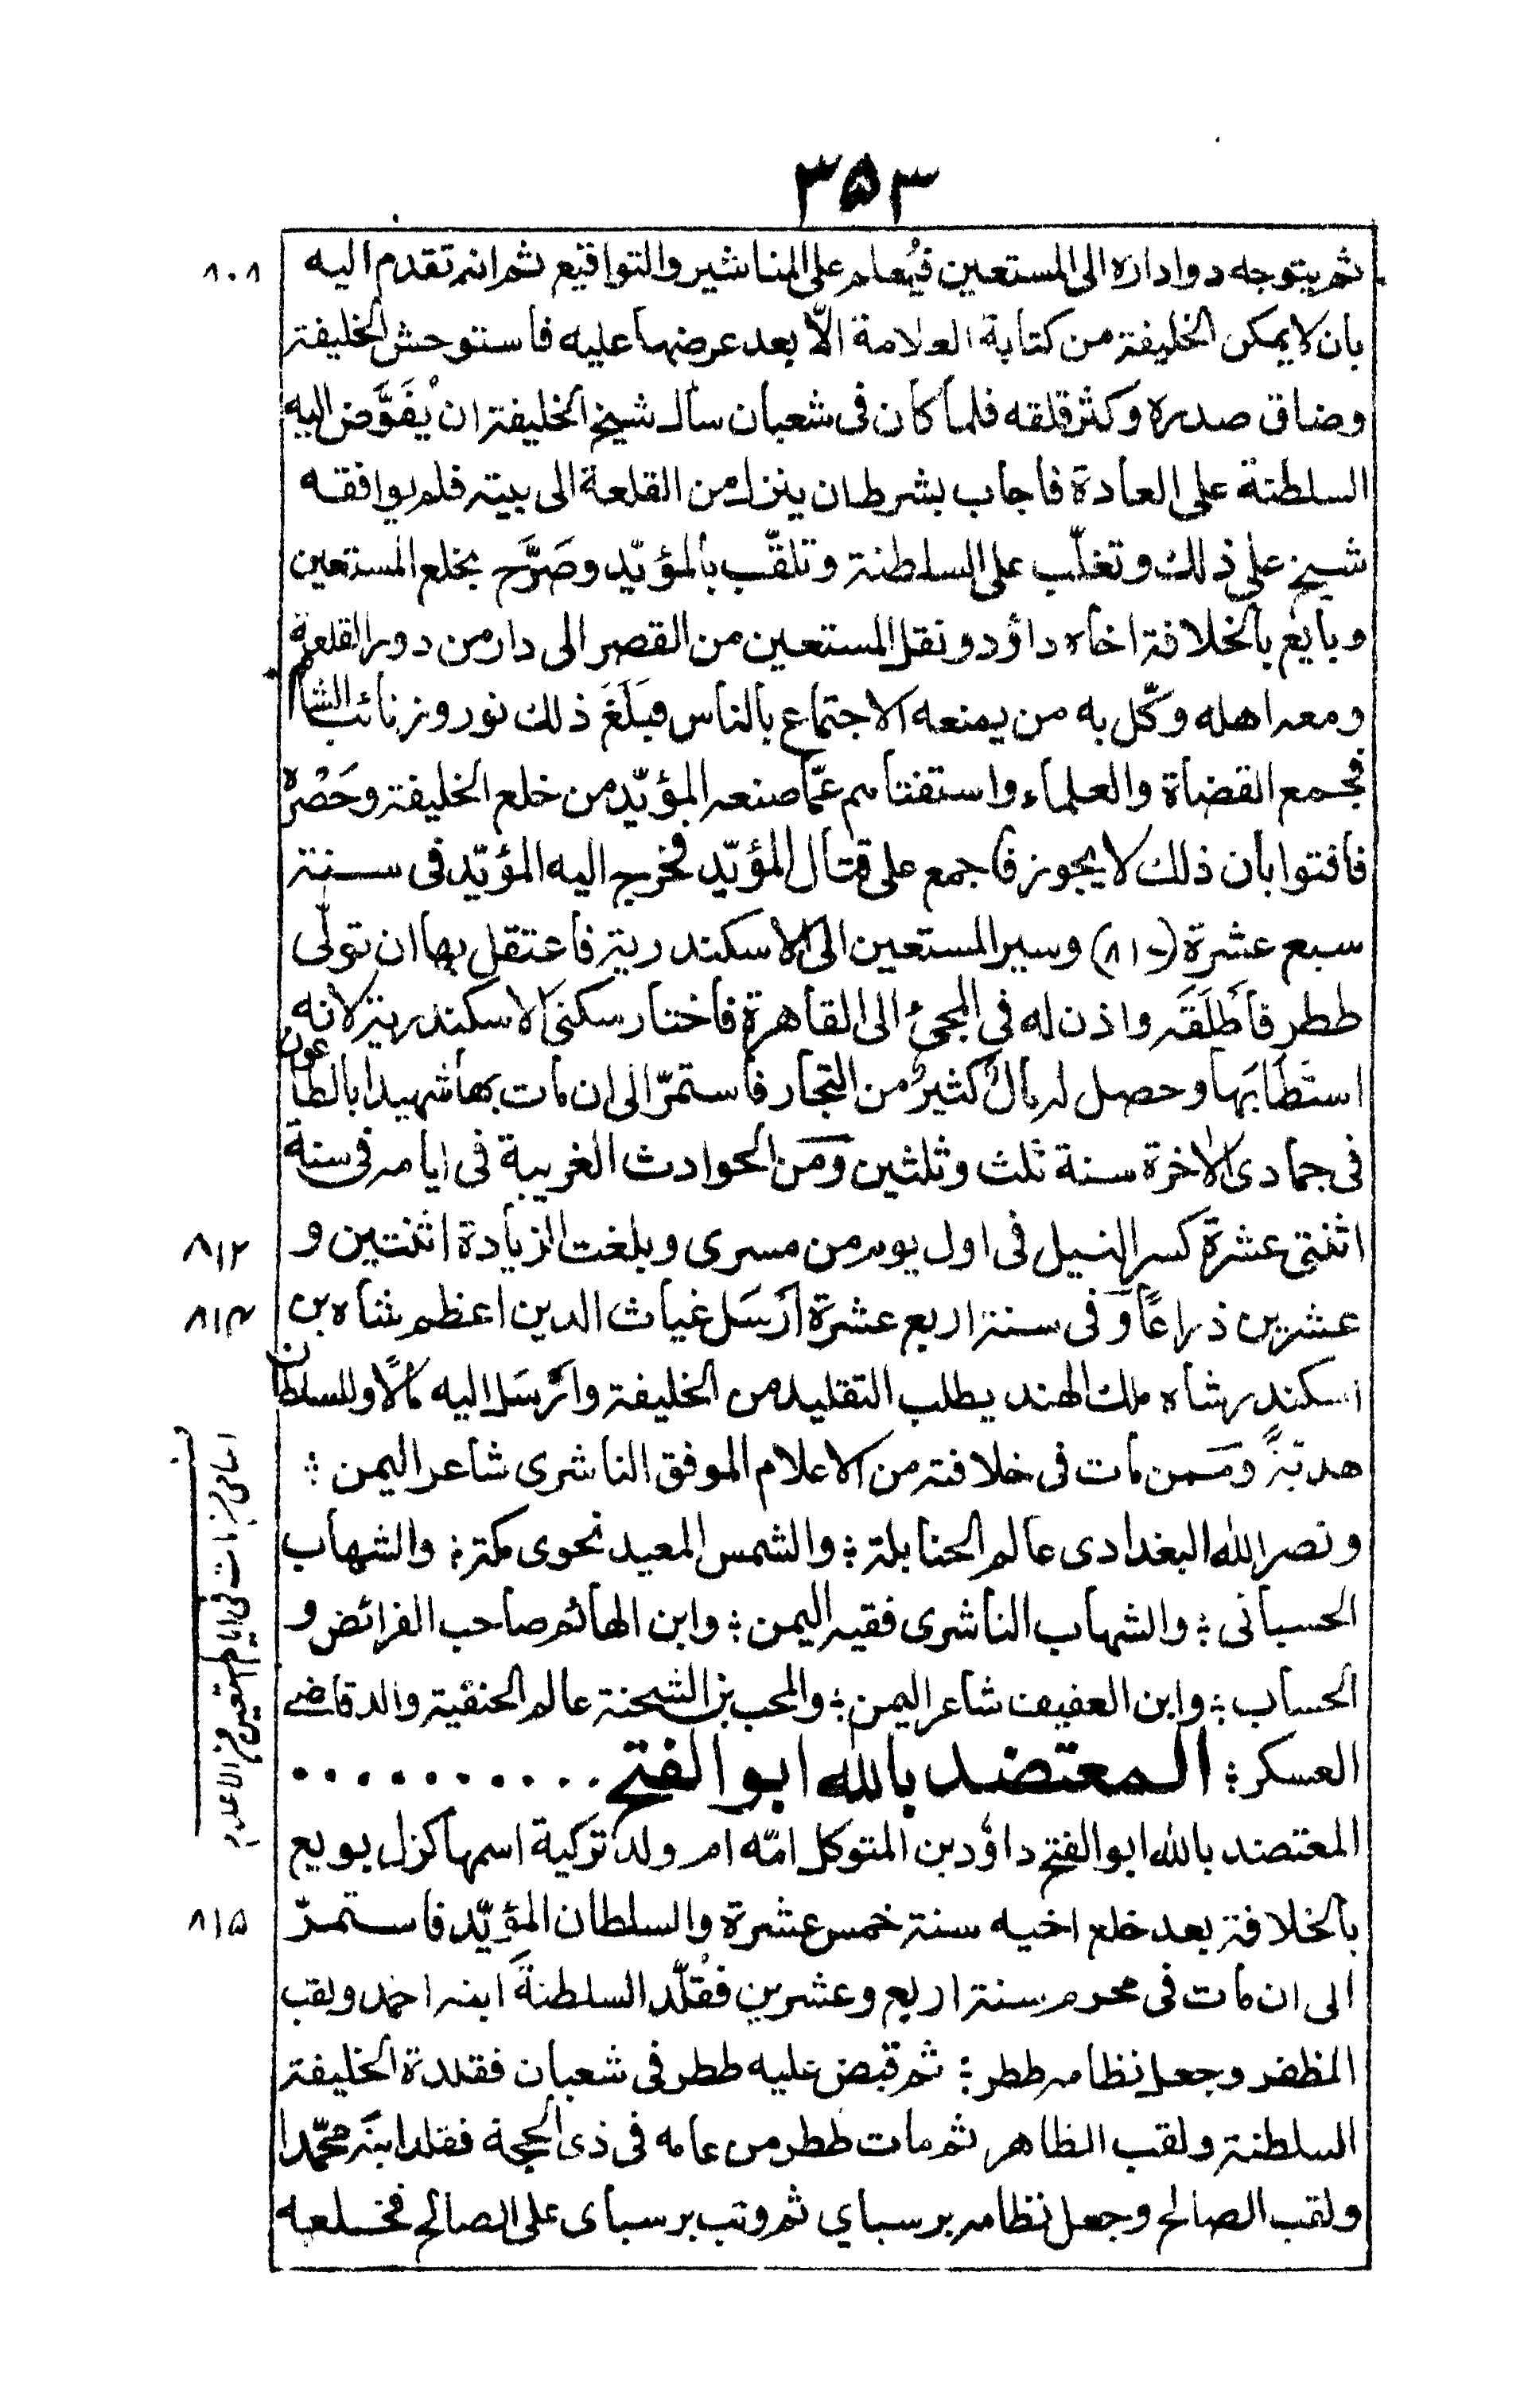 ٣٥٣
ثم يتوجه دواداره الى المستعين فيُعلم على المناشير والتواقيع ثم انہ تقدم اليه
٨٠٨
بان لا يمكن الخليفة من كتابة العلامة الّا بعد عرضها عليه فاستوحش الخليفة
وضاق صدره وكثر قلقه فلما كان فى شعبان سأل شيخ الخليفة ان يُفَوَّض اليه
السلطنة على العادة فاجاب بشرط ان ينزل من القلعة الى بيته فلم يوافقه
شيخ على ذلك وتغلّب على السلطنة وتلقّب بالمؤيّد وصَرَّح بخلع المستعين
وبايع بالخلافة اخاه داؤد ونقل المستعين من القصر الى دار من دور القلعة
ومعه اهله وكّل به من يمنعه الاجتماع بالناس فبَلَغَ ذلك نوروز نائب الشام
فجمع القضاة والعلماء واستفتاهم عمّا صنعه المؤيّد من خلع الخليفة وحَصْرِهٖ
فافتوا بأن ذلك لا يجوز فاجمع على قتال المؤيّد فخرج اليه المؤيّد فى سنة
سبع عشرة (٨١٠) وسير المستعين الى الاسكندرية فاعتقل بها ان تولّى
ططر فاَطلَقَه واذن له فى المجئ الى القاهرة فاختار سكنى الاسكندرية لانه
استطابَها وحصل له مالٌ كثيرٌ من التجار فاستمرّ الى ان مات بها شهيدا بالطاعون
فى جمادى الاٰخرة سنة ثلث وثلثين ومن الحوادث الغريبة فى ايامه فى سنة
اثنتى عشرة كسر النيل فى اول يوم من مسرى وبلغت الزيادة اثنتين و
٨١٢
عشرين ذراعًا وفى سنة اربع عشرة اَرسَل غياث الدين اعظم شاه بن
٨١٤
اسكندر شاه ملك الهند يطلب التقليد من الخليفة واَرسَل اليه مالًا وللسلطان
هديةً وممن مات فى خلافته من الاعلام الموفق الناشرى شاعر اليمن ؛
ونصر الله البغدادى عالم الحنابلة ؛ والشمس المعيد نحوى مكة ؛ والشهاب
الحسبانى ؛ والشهاب الناشرى فقيه اليمن ؛ وابن الهائم صاحب الفرائض و
الحساب ؛ وابن العفيف شاعر اليمن ؛ والمحب بن الشحنة عالم الحنفية والد قاضى
اسامى من مات فى ايام المستعين من الاعلام
العسكر ؛ المعتضد بالله ابو الفتح ..........
المعتضد بالله ابو الفتح داؤد بن المتوكل امّه ام ولد تركية اسمها كزل بويع
بالخلافة بعد خلع اخيه سنة خمس عشرة والسلطان المؤيّد فاستمرّ
٨١٥
الى ان مات فى محرم سنة اربع وعشرين فقُلّد السلطنةَ ابنه احمد ولقب
المظفر وجعل نظامه ططر ؛ ثم قبض عليه ططر فى شعبان فقلده الخليفة
السلطنة ولقب الظاهر ثم مات ططر من عامه فى ذى الحجة فقلد ابنَه محمّدا
ولقب الصالح وجعل نظامه برسباي ثم وثب برسباى على الصالح فخلعه